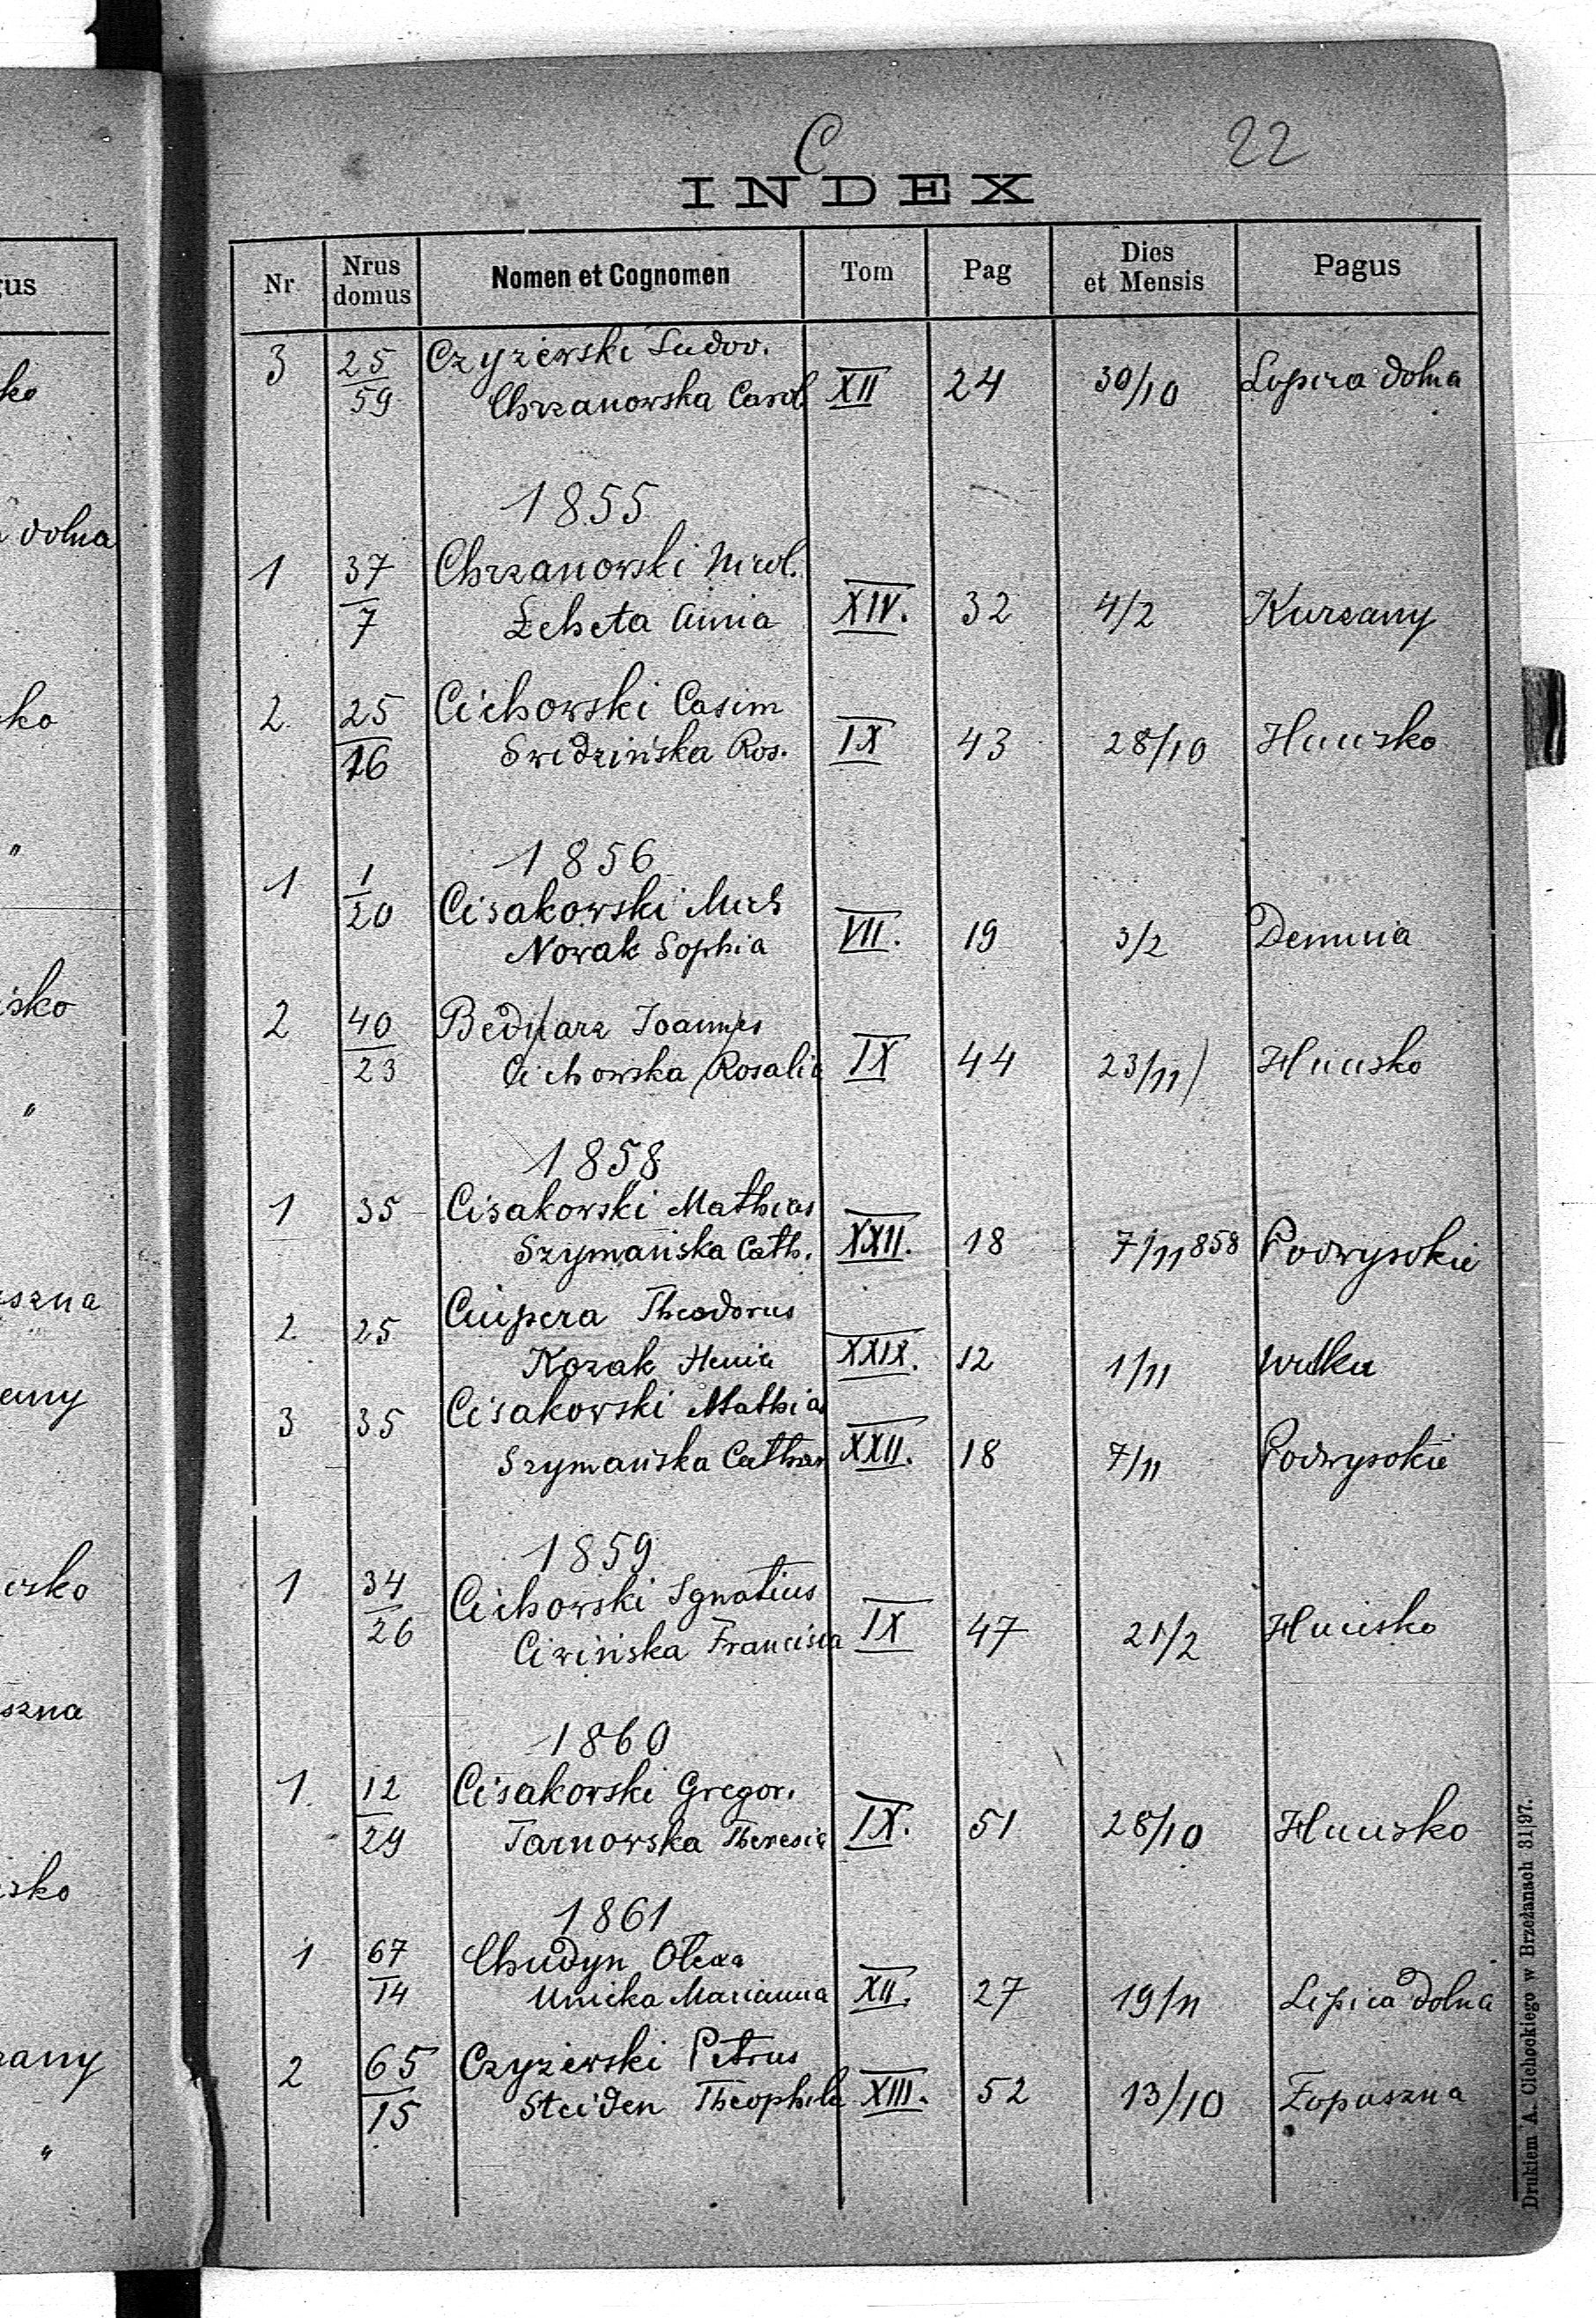 C
22
INDEX
Nr
Nrus domus
Nomen et Cognomen
Tom
Pag
Dies et Mensis
Pagus
3 25/59 Czyżewski Ludov.
Chrzanowska Carol. XII 24 30/10 Lipica dolna
1855
1 37/7 Chrzanowski Nicol.
Żeheta Anna XIV. 32 4/2 Kurzany
2 25/16 Cichowski Casim
Swidzińska Ros. IX 43 28/10 Hucisko
1856
1 1/20 Cisakowski Mich
Nowak Sophia VII. 19 3/2 Demnia
2 40/23 Bednarz Joannes
Cichowska Rosalia IX 44 23/11 Hucisko
1858
1 35 Cisakowski Mathias
Szymańska Cath. XXII. 18 7/11 858 Podwysokie
2 25 Ciupera Theodorus
Kozak Henia XXIX. 12 1/11 Wulka
3 35 Cisakowski Mathias
Szymańska Cathar XXII. 18 7/11 Podwysokie
1859
1 34/26 Cichowski Ignatius
Francisca IX 47 21/2 Hucisko
1860
1. 12/29 Cisakowski Gregor.
Tarnowska Theresia IX. 51 28/10 Hucisko
1861
1 67/14 Chudyn Olexa
Unicka Marianna XII. 27 19/11 Lipica dolna
2 65/15 Czyżewski Petrus
Steiden Theophila XIII. 52 13/10 Łopuszna
Drukiem A. Cichockiego w Brzeżanach 31|97.
gus
ko
dolna
sko
"
isko
"
szna
any
cisko
szna
isko
zany
"